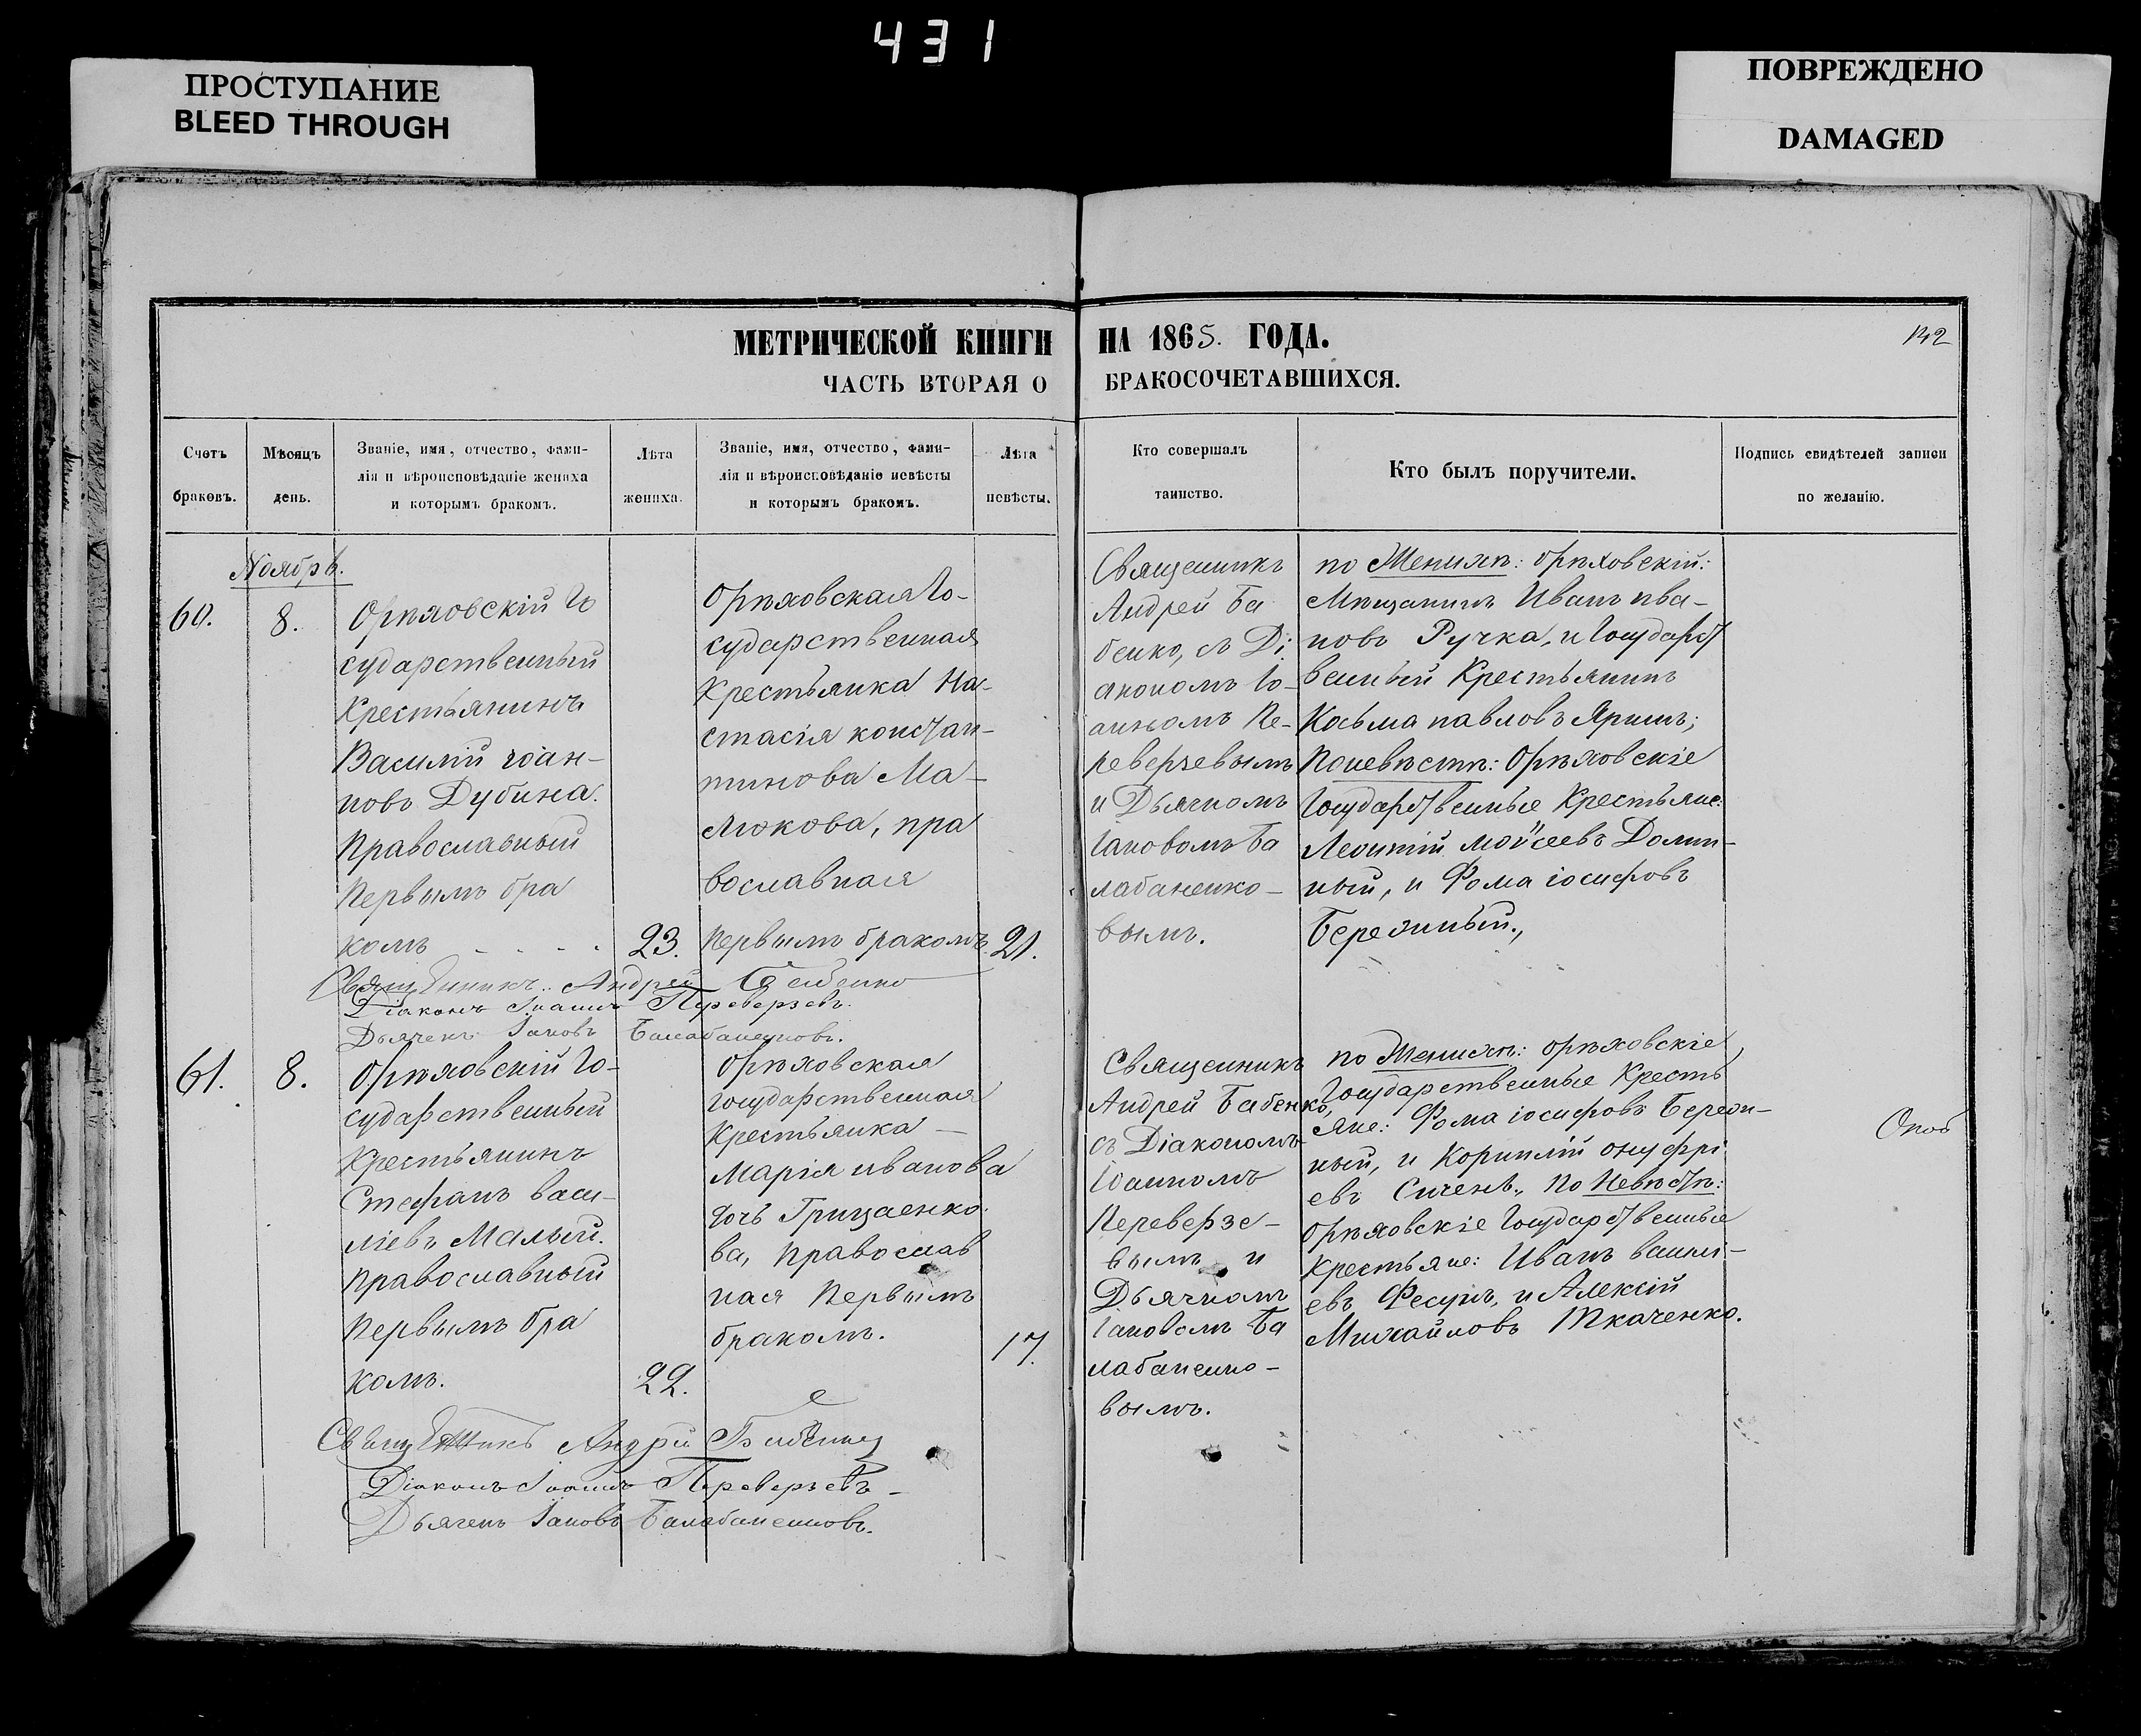 431
ПРОСТУПАНИЕ
BLEED THROUGH
ПОВРЕЖДЕНО
DAMAGED
МЕТРИЧЕСКОЙ КНИГИ НА 1865. ГОДА.
142
ЧАСТЬ ВТОРАЯ О БРАКОСОЧЕТАВШИХСЯ.
Счетъ
браковъ.
Мѣсяцъ
день.
Званіе, имя, отчество, фами-
лія и вѣроисповѣданіе жениха
и которымъ бракомъ.
Лѣта
жениха.
Званіе, имя, отчество, фами-
лія и вѣроисповѣданіе невѣсты
и которымъ бракомъ.
Лѣта
невѣсты.
Кто совершалъ
таинство.
Кто былъ поручители.
Подпись свидѣтелей записи
по желанію.
Ноябрь.
60.
8.
Орѣховскій Го
сударственный
Крестьянинъ
Василій іоан-
новъ Дубина.
Православный
Первымъ бра
комъ - - - .
23.
Орѣховская Го-
сударственная
Крестьянка На-
стасія констан-
тинова Ма-
люкова, пра
вославная
Первымъ бракомъ.
21.
Священникъ
Андрей Ба
бенко, съ Ді
акономъ Іо-
анномъ Пе-
реверзевымъ
и Дьячкомъ
Іаковомъ Ба
лабаненко-
вымъ.
по Женихѣ: орѣховскій:
Мѣщанинъ Иванъ ива-
новъ Ручка, и Государст
венный Крестьянинъ
Косьма павловъ Яришъ;
По невѣстѣ: Орѣховскіе
Государственные Крестьяне:
Леонтій моѵсеевъ Долин-
ный, и Фома іосифовъ
Березиный.,
Священникъ Андрей Бабенко
Діаконъ Іоаннъ Переверзевъ.
Дьячекъ Іаковъ Балабаненковъ.
61.
8.
Орѣховскій Го-
сударственный
Крестьянинъ
Стефанъ васи-
ліевъ Малый.
Православный
Первымъ бра
комъ.
22.
Орѣховская
государственная
Крестьянка -
Марія иванова
дочь Грицаенко-
ва, Православ
ная Первымъ
бракомъ.
17.
Священникъ
Андрей Бабенко,
съ Діакономъ
Іоанномъ
Переверзе-
вымъ и
Дьячкомъ
Іаковомъ Ба
лабаненко-
вымъ.
по Женихѣ: орѣховскіе
Государственные Кресть
яне: Фома іосифовъ Берези-
ный, и Корнилій онуфрі
евъ Сичень., По Невѣстѣ:
орѣховскіе Государственные
Крестьяне: Иванъ васили-
евъ Фесунъ, и Алексій
Михайловъ Ткаченко.
Священникъ Андрей Бабенко
Діаконъ Іоаннъ Переверзевъ -
Дьячекъ Іаковъ Балабаненковъ.